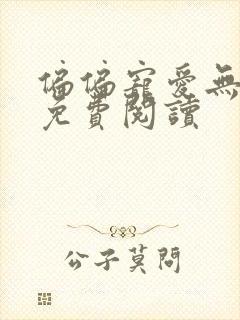 偏偏寵愛無
免費閱讀
公子莫問